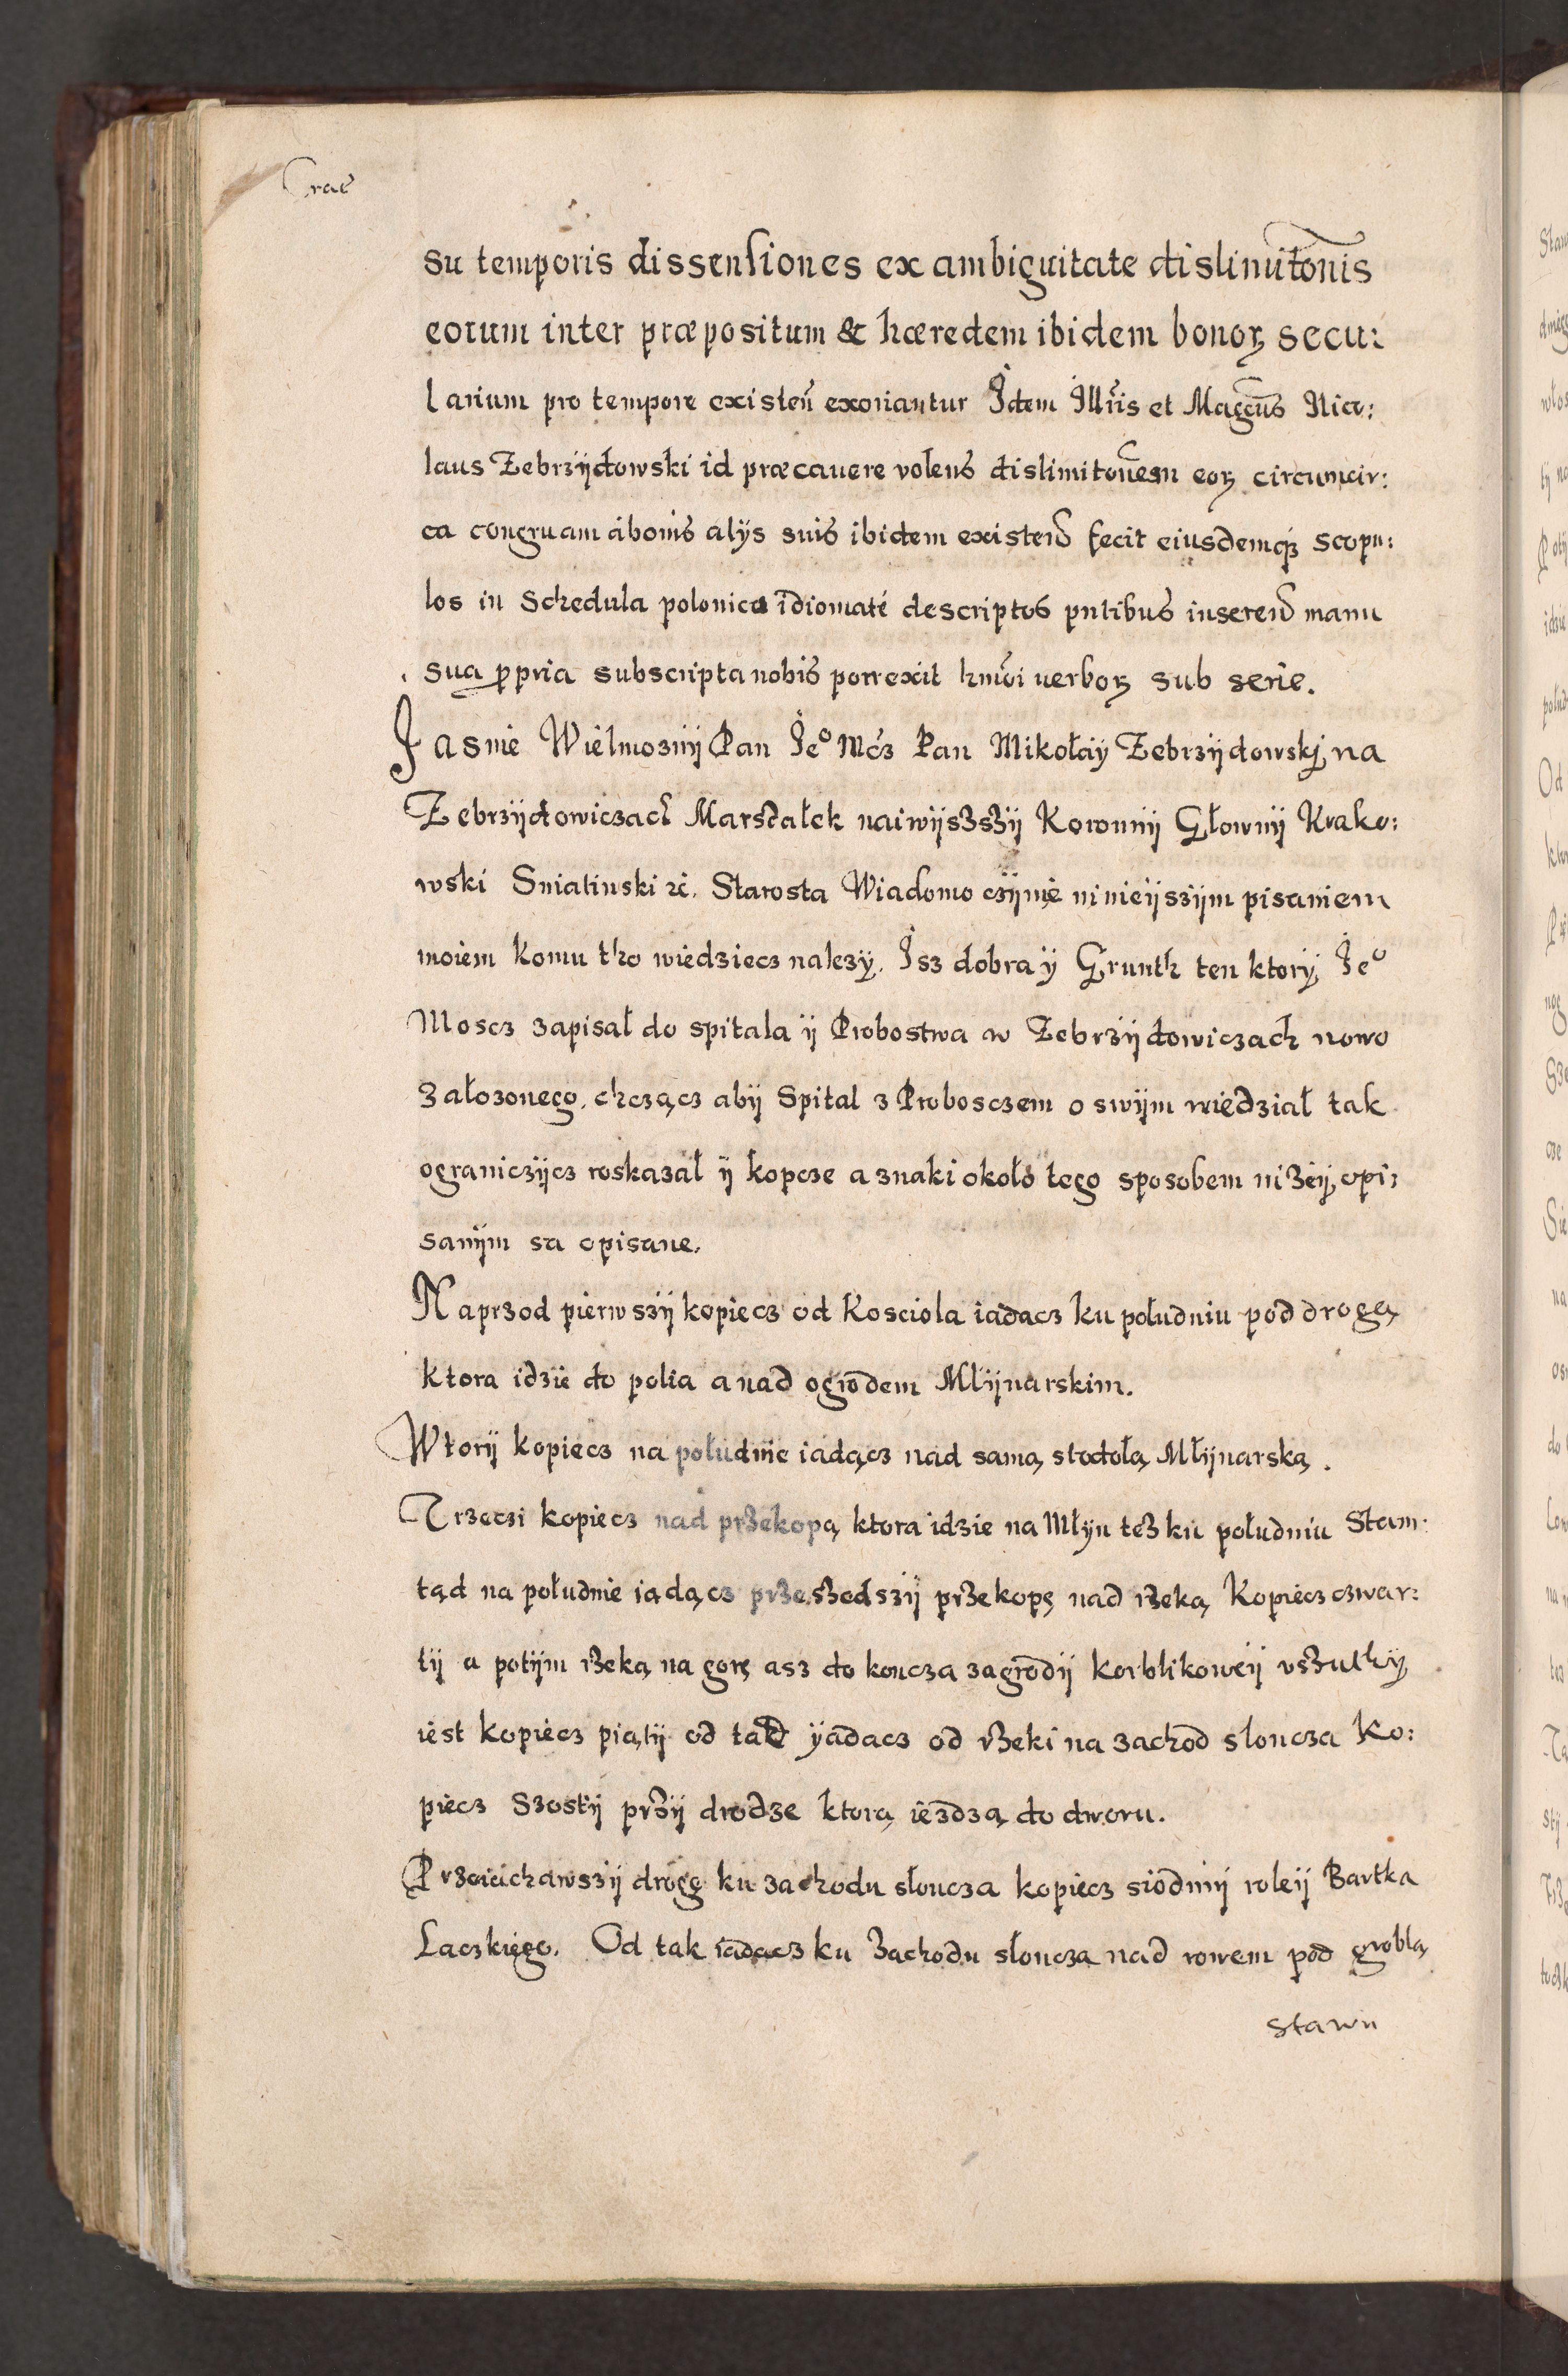 Crac
su temporis dissensiones ex ambiguitate dislimitõnis
eorum inter præpositum & hæredem ibidem bonoꝝ secu:
larium pro tempore existeñ exoriantur Idem Illris et Magcus Nico:
laus Zebrzÿdowski id præcauere volens dislimitõnem eoꝝ circumcir:
ca congruam à bonis alÿs suis ibidem existeñ fecit eiusdemqꝫ scopu:
los in Schedula polonico idiomate descriptos pntibus insereñ manu
sua ppria subscripta nobis porrexit hmõi uerboꝝ sub serie.
Jasnie Wielmoznÿ Pan Je° Mcz Pan Mikołaÿ Zebrzÿdowskj na
Zebrzÿdowiczach Marszałek naiwÿszszÿ Koronnÿ Głownÿ Krako:
wski Sniatinski zc. Starosta Wiadomo czÿnię ninieÿszÿm pisaniem
moiem komu tho wiedziecz nalezÿ. Isz dobra ÿ Grunth ten ktorÿ Je°
Moscz zapisał do spitala ÿ Probostwa w Zebrzÿdowiczach nowo
załozonego, chczącz abÿ Spital z Proboszczem o swÿm wiedział tak
ograniczÿcz roskazał ÿ kopcze a znaki około tego sposobem nizeÿ opi:
sanÿm sa opisane.
Naprzod pierwszÿ kopiecz od Kosciola iadacz ku południu pod drogą
ktora idzie do polia a nad ogrodem Młÿnarskim.
Wtorÿ kopiecz na południe iadącz nad samą stodołą Młÿnarską.
Trzeczi kopiecz nad przekopą ktora idzie na Młyn tez ku południu Stam:
tąd na południe iądącz przeszedszÿ przekopę nad rzeką Kopiecz czwar:
tÿ a potÿm rzeką na gorę asz do koncza zagrodÿ korblikoweÿ
iest kopiecz piątÿ od tad ÿadacz od rzeki na zachod słoncza Ko:
piecz Szostÿ przÿ drodze ktorą iezdzą do dworu.
Przeiachawszÿ drogę ku zachodu słoncza kopiecz siodmÿ roleÿ Bartka
Laczkięgo. Od tak iadacz ku zachodu słoncza nad rowem pod groblą
stawu